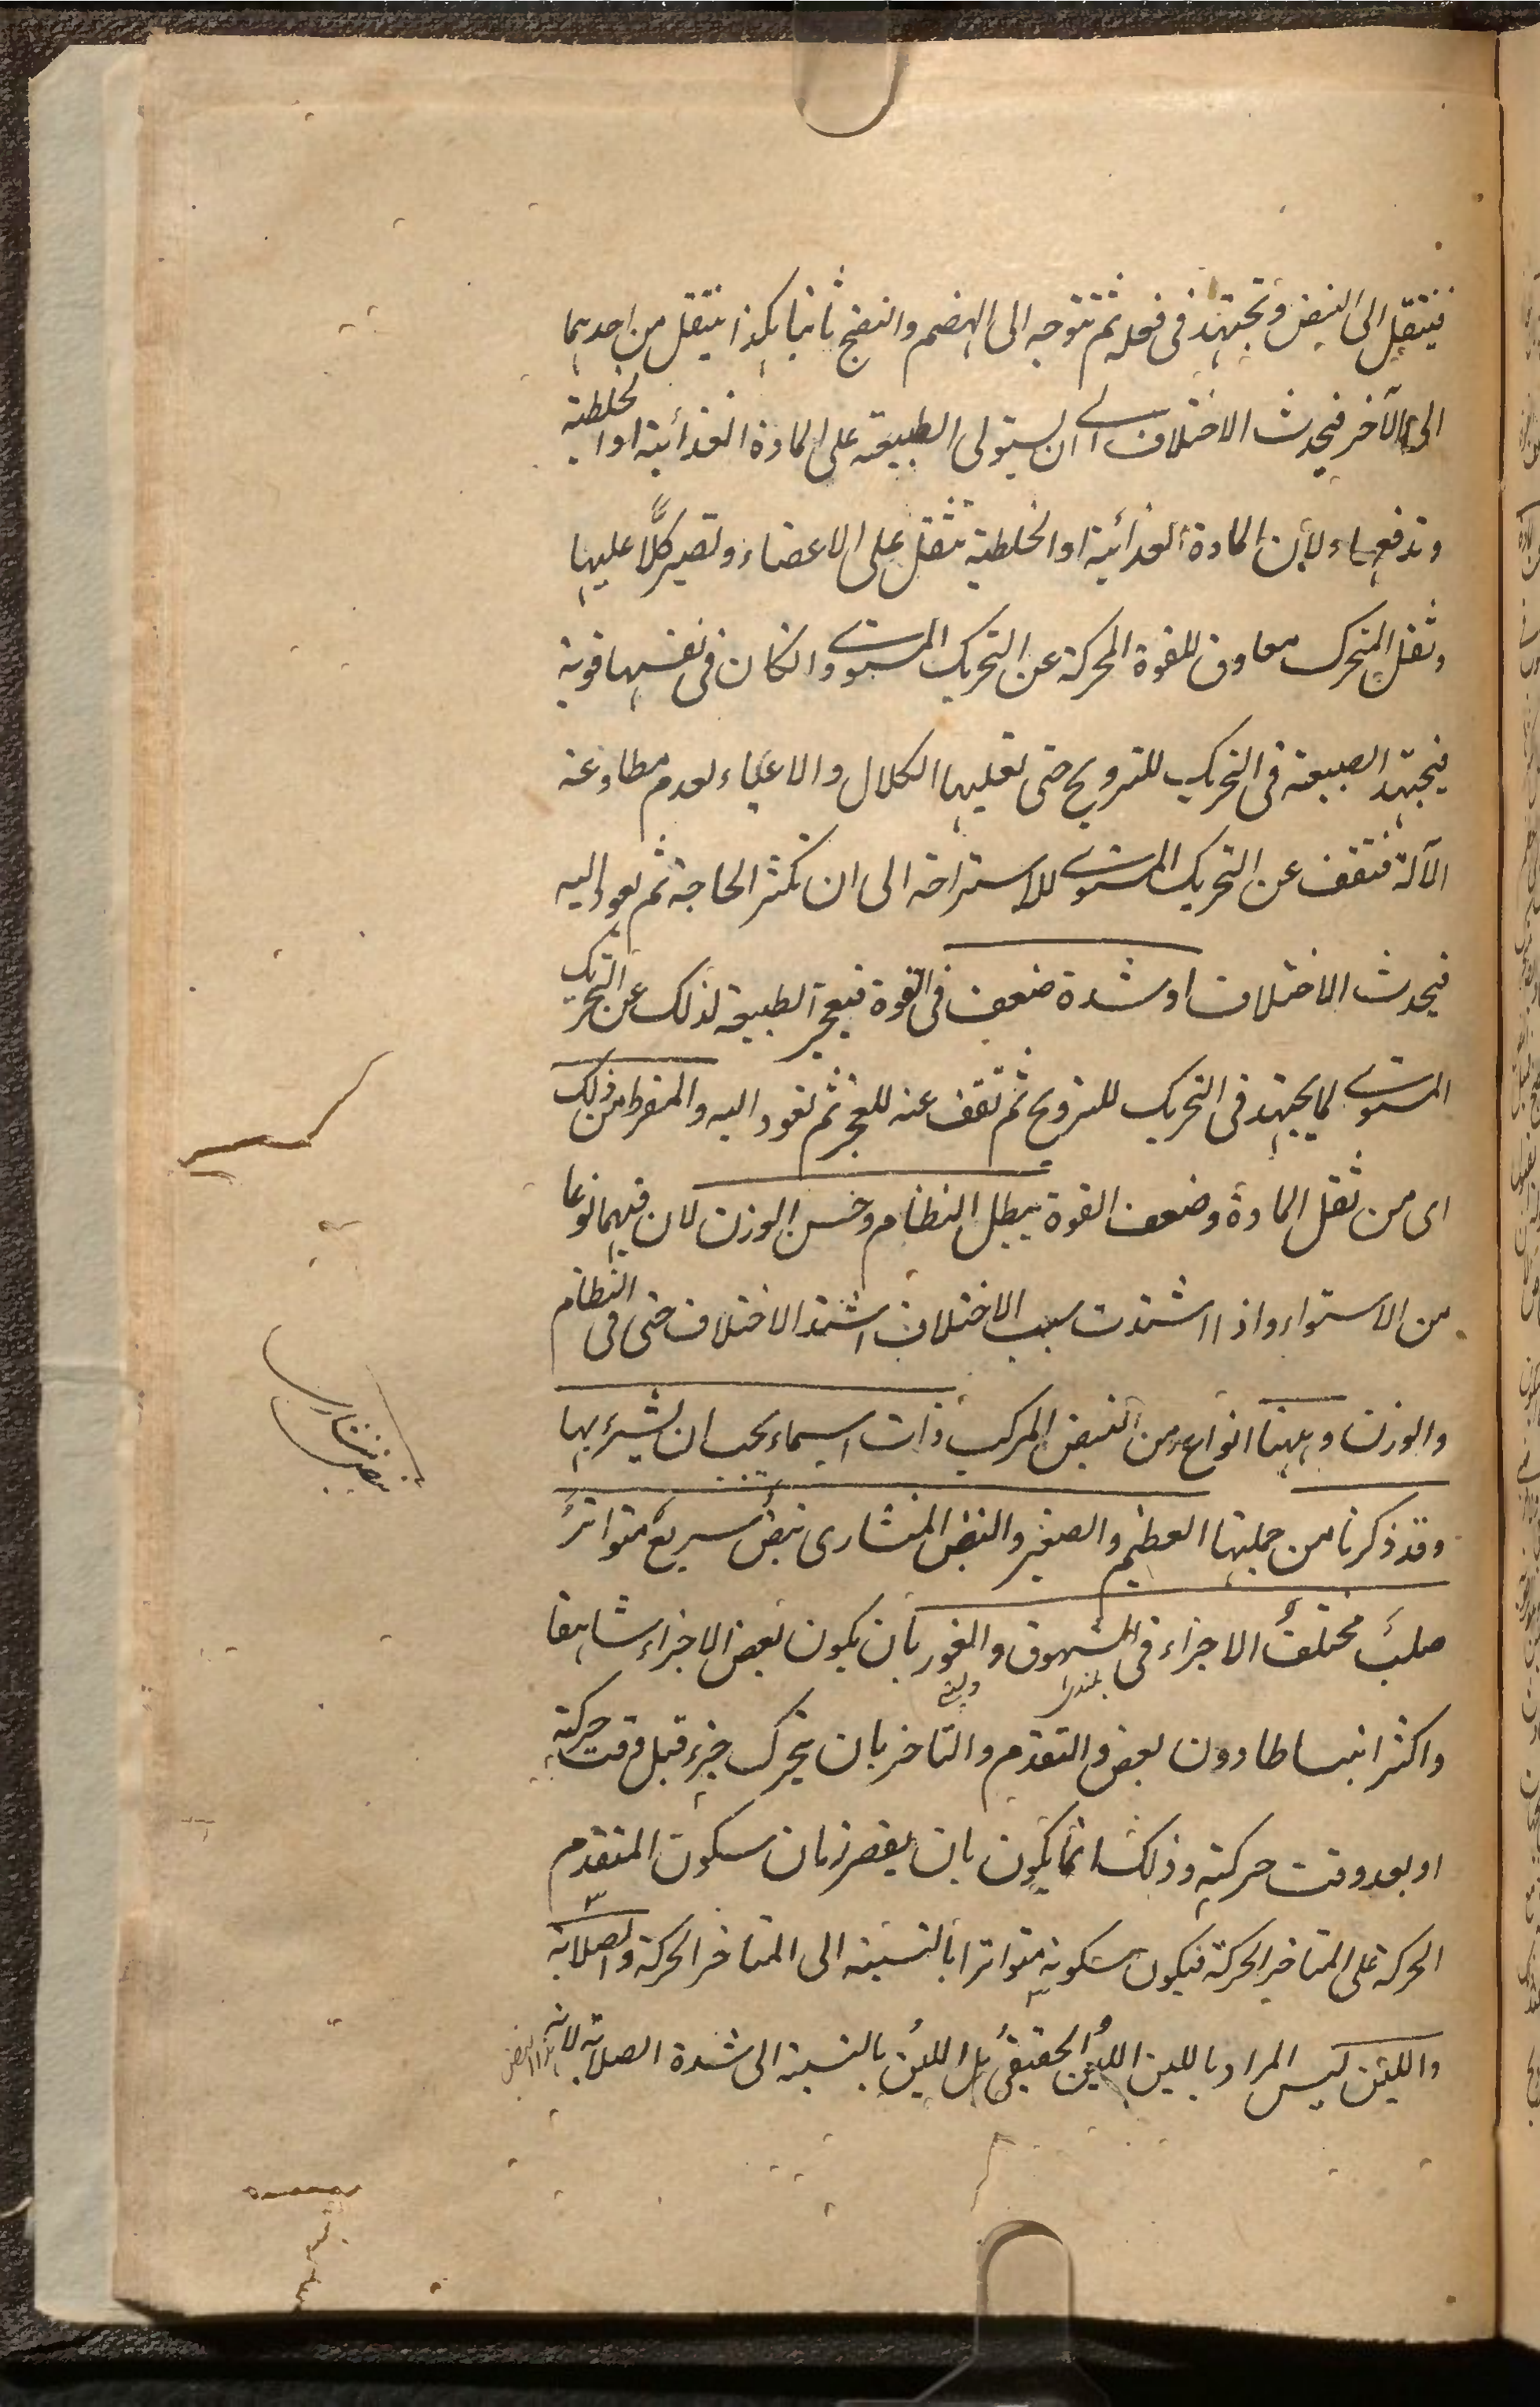 فينتقل الى النبض وتجتهد فى فعله ثم تتوجه الى الهضم والنضج ثانيا هكذا ينتقل من احديهما
الى الآخر فيحدث الاختلاف الى ان يستولى الطبيعة على المادة الغذائية او الخلطية
وتدفعها ولأن المادة الغذائية او الخلطية تثقل على الاعضاء وتصير كلًّا عليها
وثقل المتحرك معاوق للقوة المحركة عن التحريك المستوى وانكان فى نفسها قوية
فيجتهد الطبيعة فى التحريك للترويح حتى تغلبها الكلال والاعياء لعدم مطاوعة
الآلة فتقف عن التحريك المستوى للاستراحة الى ان تكثر الحاجة ثم يعود اليه
فيحدث الاختلاف او شدة ضعف فى القوة فيعجز الطبيعة لذلك عن التحريك
المستوى لما يجتهد فى التحريك للترويح ثم تقف عنه للعجز ثم تعود اليه والمفرط من ذلك
اى من ثقل المادة وضعف القوة يبطل النظام وحسن الوزن لان فيهما نوعا
من الاستواء واذا اشتدت سبب الاختلاف اشتد الاختلاف حتى فى النظام
والوزن وههنا انواع من النبض المركب ذات اسماء يجب ان نشير بها
وقد ذكرنا من جملتها العظيم والصغير والنبض المنشارى نبض سريع متواتر
صلب مختلف الاجزاء فى الشهوق والغور بان يكون بعض الاجزاء شاهقا
بلندى
واكثر انبساطا دون بعض والتقدم والتاخر بان يتحرك جزء قبل وقت حركته
او بعد وقت حركته وذلك انما يكون بان يقصر زمان سكون المتقدم
الحركة على المتاخر الحركة فيكون سكونه متواترا بالنسبة الى المتاخر الحركة والصلابة
واللين ليس المراد باللين اللين الحقيقى بل اللين بالنسبة الى شدة الصلابة لانه هذا النبض
نبض منشارى